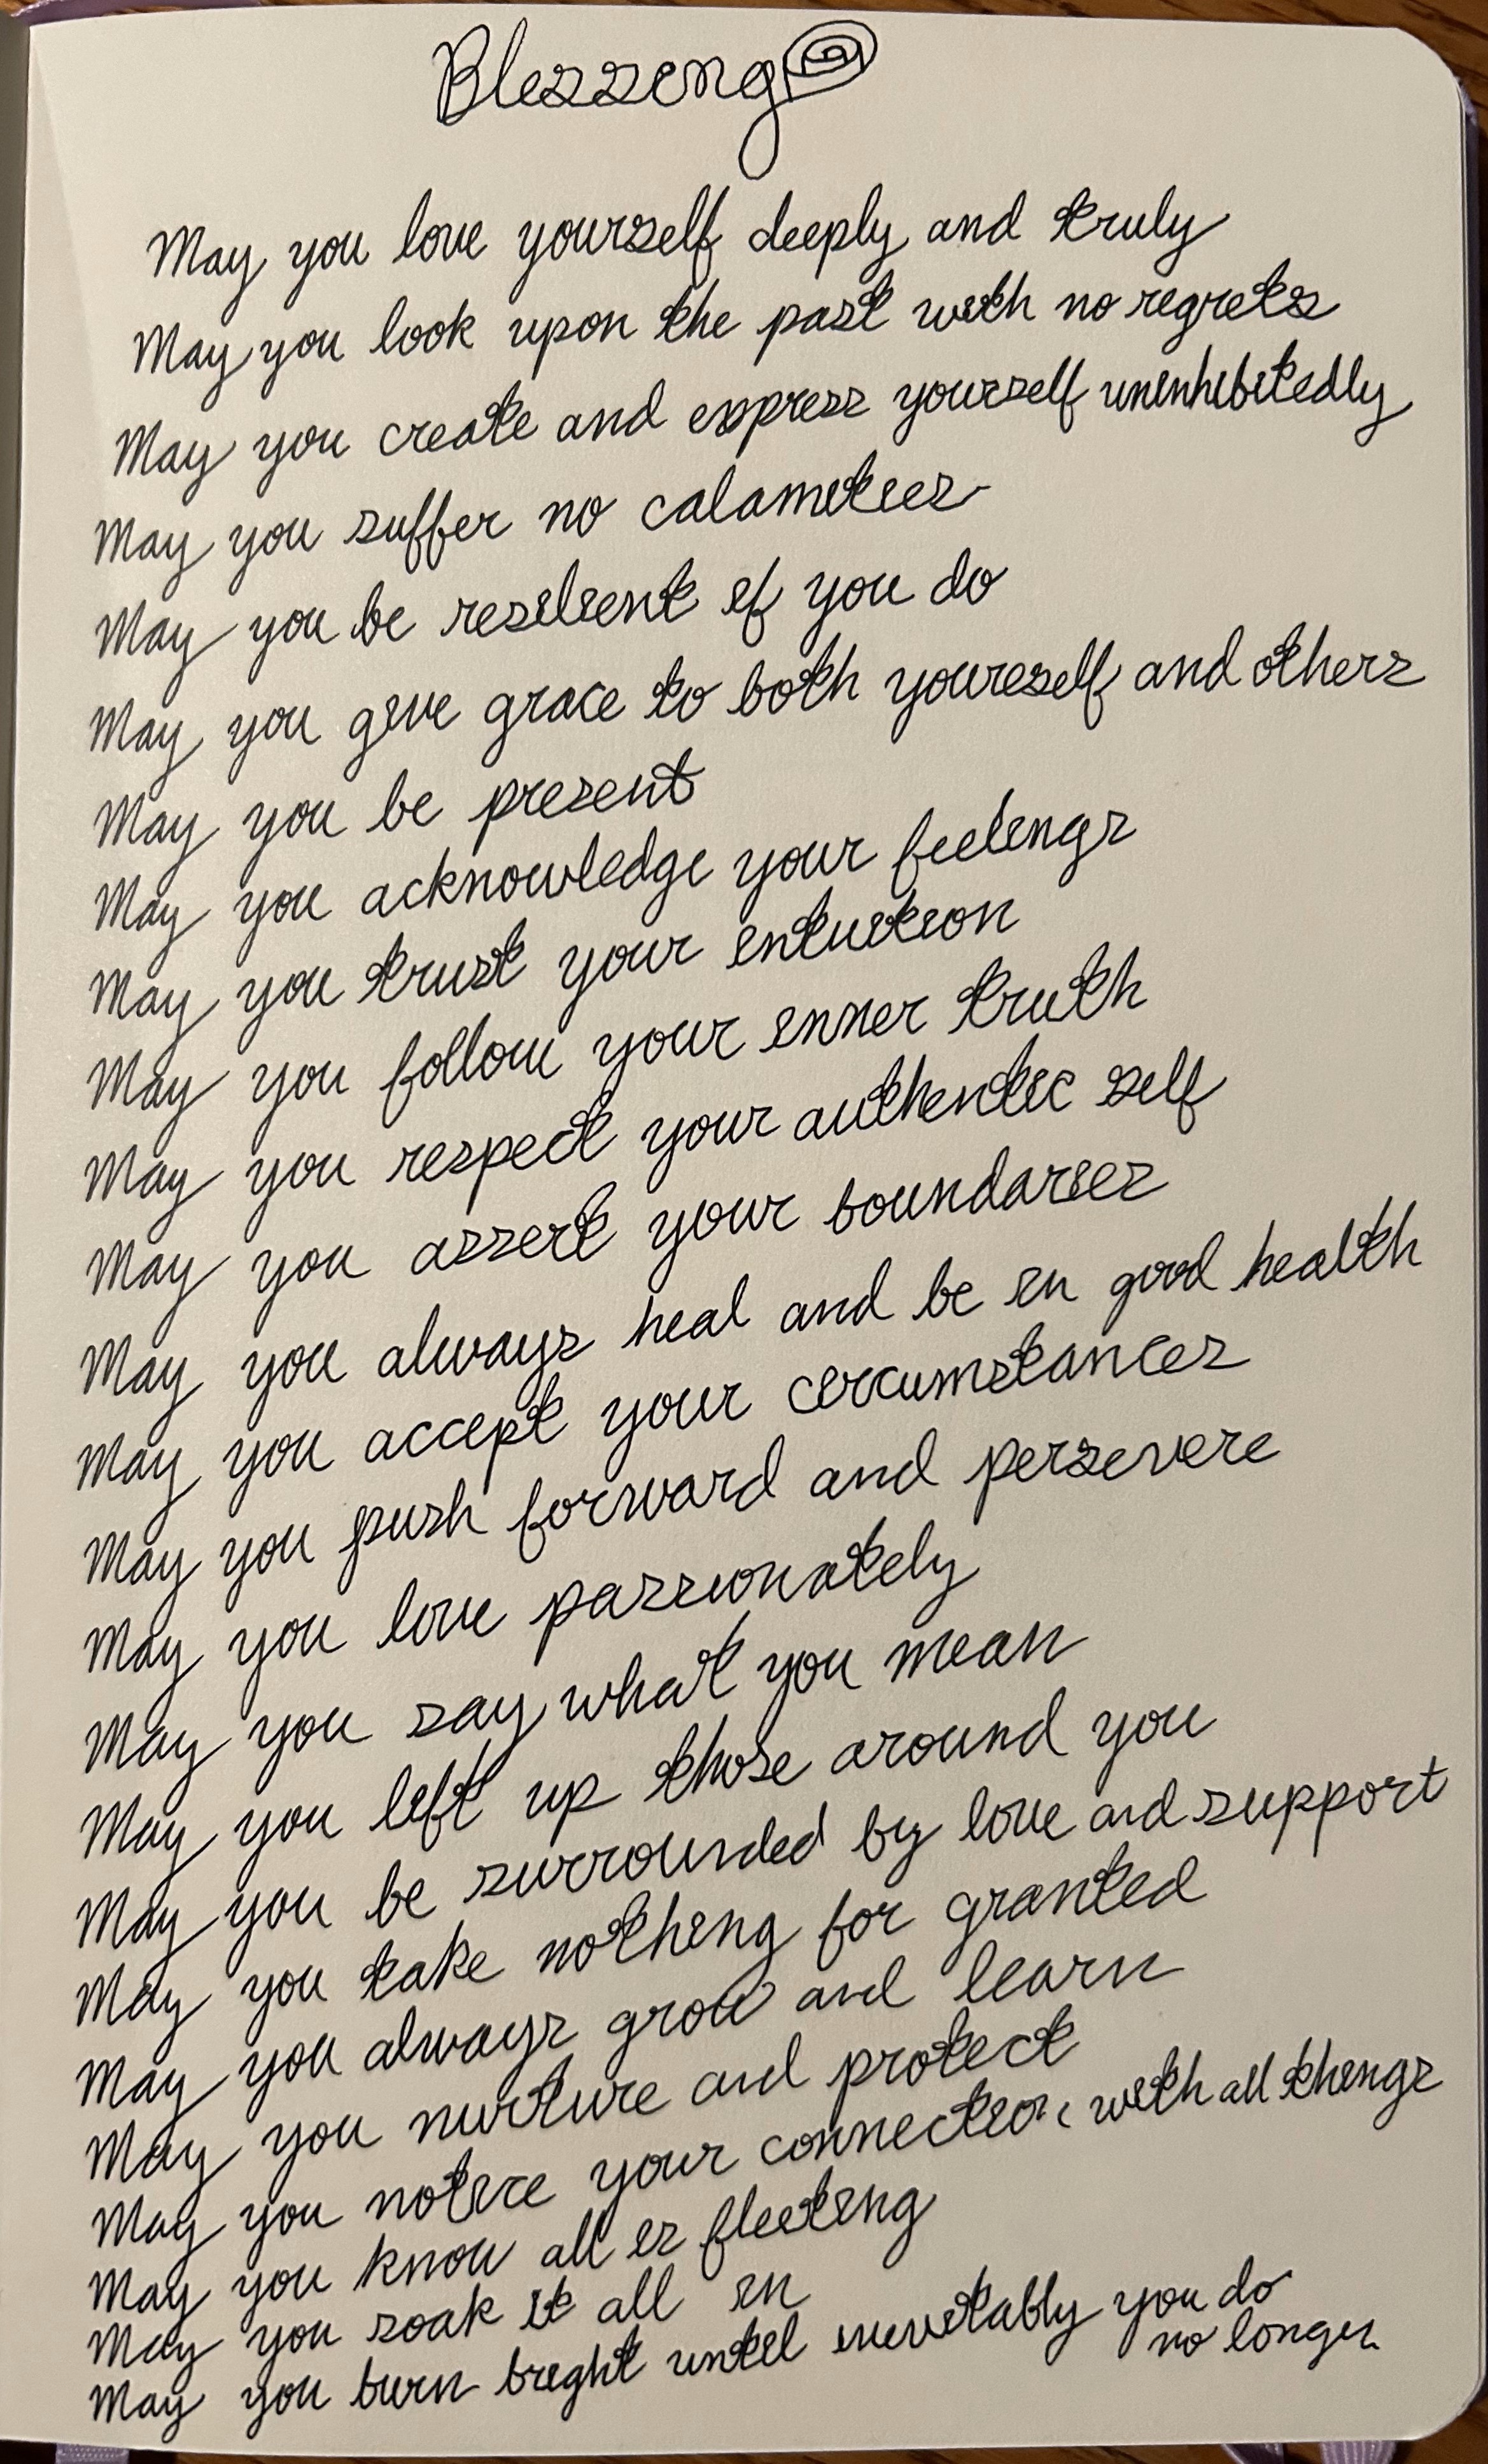 Blessing
May you love yourself deeply and truly
May you look upon the past with no regrets
May you create and express yourself uninhibitedly
May you suffer no calamities
May you be resilient if you do
May you give grace to both yourself and others
May you be present
May you acknowledge your feelings
May you trust your intuition
May you follow your inner truth
May you respect your authentic self
May you assert your boundaries
May you always heal and be in good health
May you accept your circumstances
May you push forward and persevere
May you love passionately
May you say what you mean
May you lift up those around you
May you be surrounded by love and support
May you take nothing for granted
May you always grow and learn
May you nurture and protect
May you notice your connection with all things
May you know all is fleeting
May you soak it all in
May you burn bright until inevitably you do
no longer